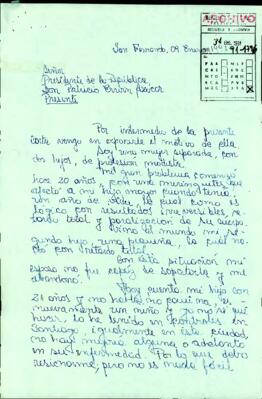 ARCHIVO
San Fernando, 09 Enero 1991
Señor
Presidente de la República
Don Patricio Aylwin Azócar
Presente
Por intermedio de la presente
carta vengo en exponerle el motivo de ella.
Soy una mujer separada, con
dos hijos, de profesión modista.
Mi gran problema comenzó
hace 20 años, con una meningitis que
afectó a mi hijo mayor cuando tenía
un año de vida, lo cual como es
lógico con resultados irreversibles, re-
tardo total y paralización de su cuerpo.
Vino al mundo mi se-
gundo hijo, una pequeña, la cual na-
ció con retardo leve.
Con esta situación mi
esposo no fue capaz de soportarla y me
abandonó.
Hoy cuenta mi hijo con
21 años y no habla, no camina, es
nuevamente un niño y yo no sé qué
hacer, lo he tenido en controles en
Santiago, igualmente en esta ciudad,
no hay mejoría alguna o adelanto
en su enfermedad. Por lo que debo
resignarme, pero no es nada fácil